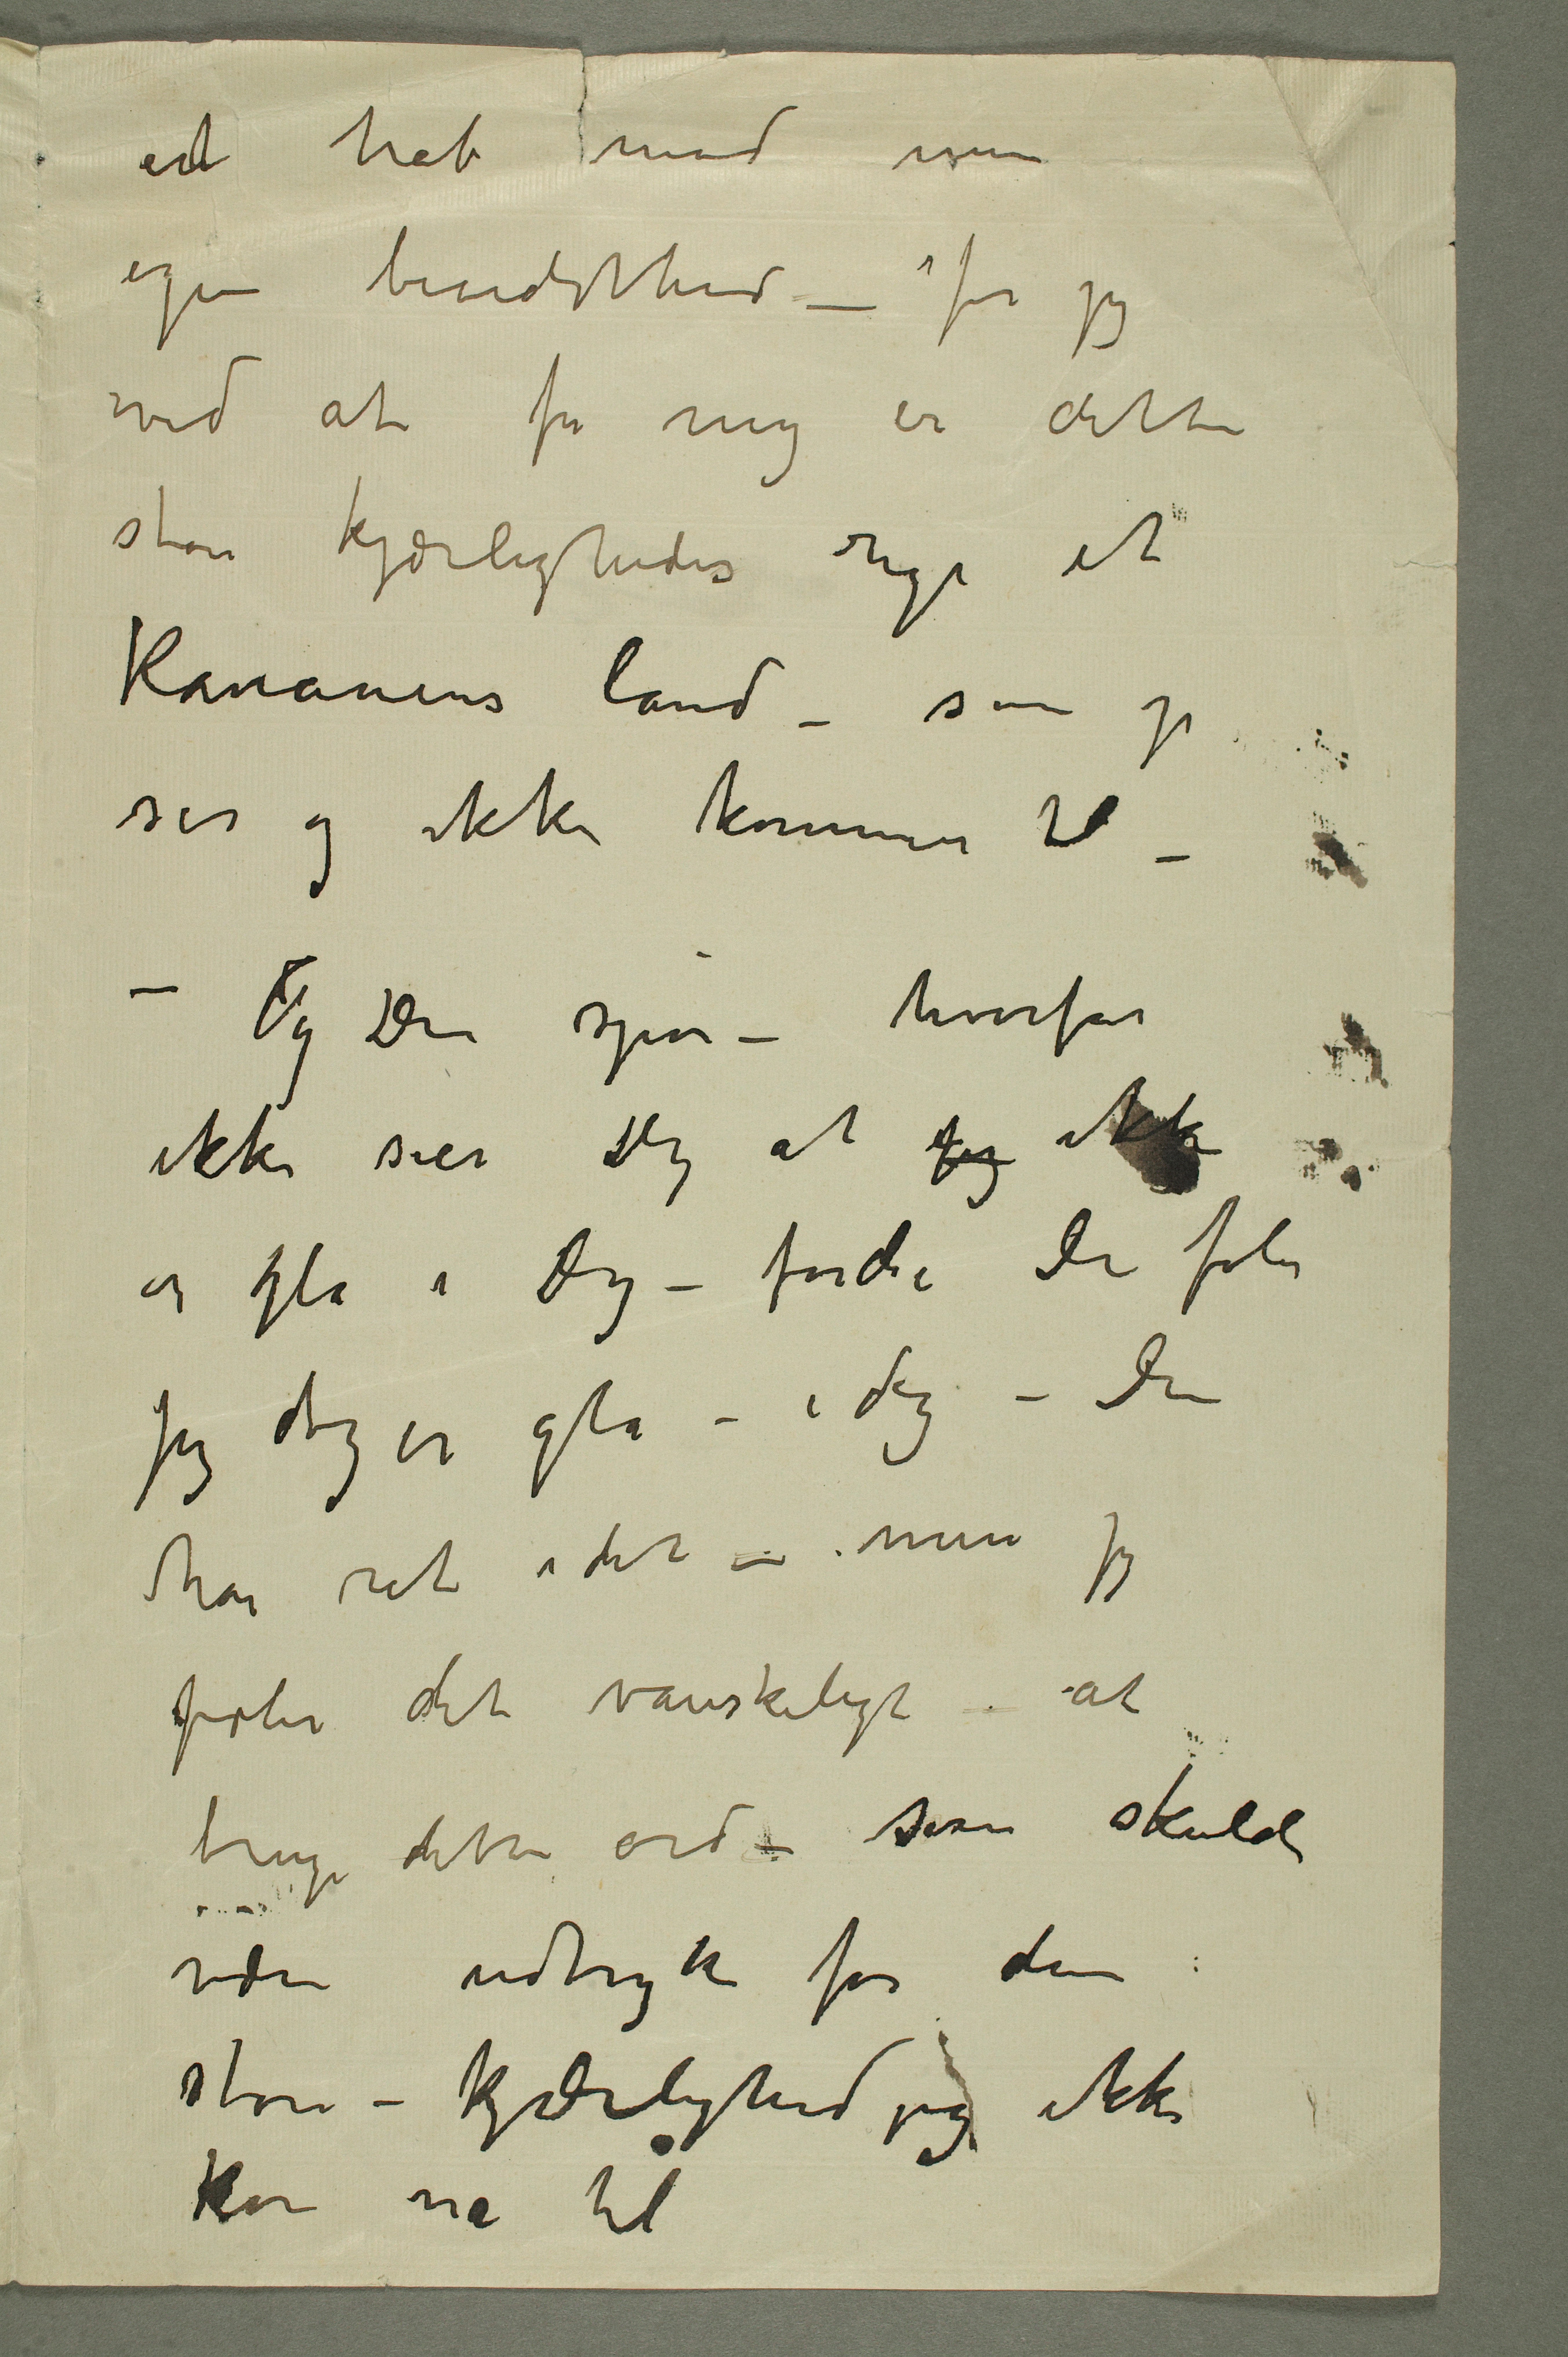 et hab mod min
egen bevidsthed – for jeg
ved at for mig er dette
store kjærligheds rige et
Kanaans land – som jeg
ser og ikke kommer til –
– Og Du spør – hvorfor
ikke sier Dig at jeg ikke
er gla i Dig – fordi Du føler
jeg dog er gla – i dig – Du
har ret i det – men jeg
føler det vanskeligt – at
bruge dette ord – som skulde
være udtryk for den
store – kjærlighed jeg ikke
kan nå til